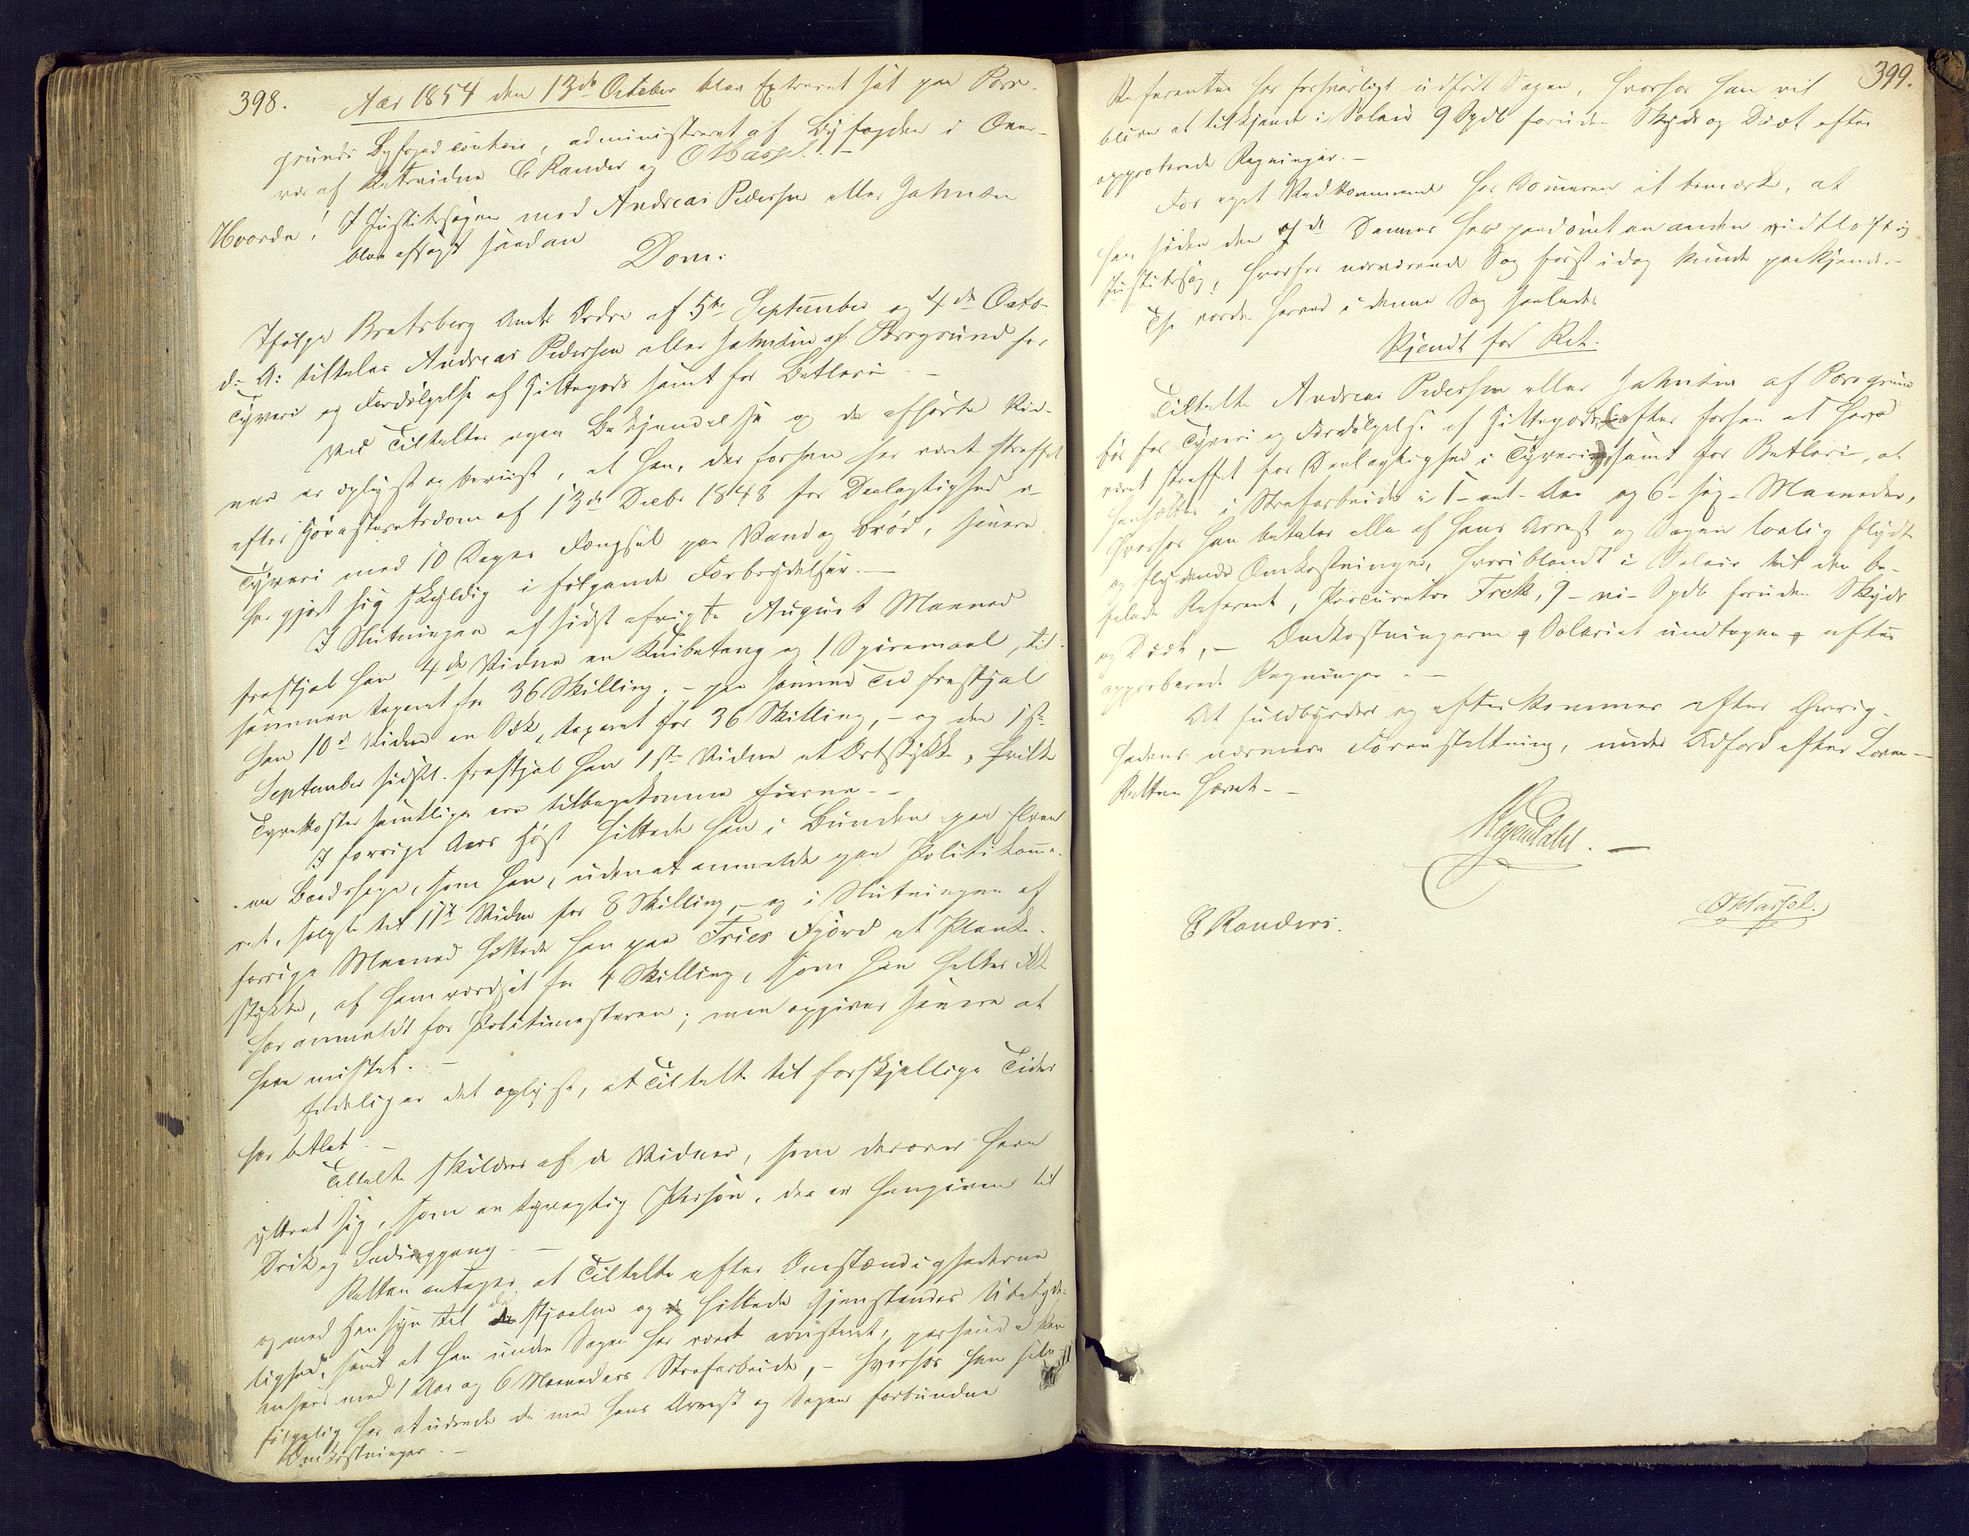 398.
Aar 1854 den 13de October blev Extraret sat paa Pors-
grunds Byfogedcontoir, administreret af Byfogden i Over-
vær af Retsvidne C Rander og O Hassel. —
Hvorda! I Justitssagen mod Andreas Pedersen eller Jahnsen
blev afsagt saadan
Dom:
Ifølge Bratsberg Amts Ordre af 5te September og 4de Octo-
d: A: tiltales Andreas Pedersen eller Jahnsen af Porsgrund for
Tyveri og Fordølgelse af Hittegods samt for Betleri. —
Ved Tiltaltes egen Bekjendelse og de afhørte Vid-
ner er oplyst og beviist, at han, der forhen har været straffet
efter Høiesteretsdom af 13de Decbr 1848 for Deelagtighed i
Tyveri med 10 Dages Fængsel paa Vand og Brød, senere
har gjort sig skyldig i følgende Forbrydelser. —
I Slutningen af sidst afvigte August Maaned
frastjal han 4de Vidne en Knibetang og 1 Spiremaal, til-
sammen taxeret for 36 Skilling. — paa samme Tid frastjal
han 10de Vidne en Øxe, taxeret for 36 Skilling, — og den 1ste
September sidstl. frastjal han 1ste Vidne et Ørtstykke, hvilke
Tyvekoster samtlige ere tilbagekomne Eierne. —
I forrige Aars Høst hittede han i Bunden paa Elven
en Baadshage, som han, uden at anmelde paa Politikamme-
ret, solgte til 11te Vidne for 8 Skilling, — og i Slutningen af
forrige Maaned hittede han paa Friers Fjord et Planke-
stykke, af ham værdsat for 4 Skilling, som han heller ikke
har anmeldt for Politimesteren; men opgiver senere at
have mistet. —
Endelig er det oplyst, at Tiltalte til forskjellige Tider
har betlet. —
Tiltalte skildres af de Vidner, som derover have
yttret sig, som en tyvagtig Person, der er hengiven til
Drik og Lediggang. —
Retten antager at Tiltalte efter Omstændighederne
og med Hensyn til de stjaalne og hittede Gjenstandes Ubetyde-
lighed, samt at han under Sagen har været arresteret, passende kan
ansees med 1 Aar og 6 Maaneders Strafarbeide, — hvorhos han selv-
følgelig har at udrede de med hans Arrest og Sagen forbundne
Omkostninger. —
399.
Referenten har forsvarligt udført Sagen, hvorfor han vil
blive at tilkjende i Salair 9 Spdl foruden Skyds og Diæt efter
approberede Regninger. —
For eget Vedkommende har Dommeren at bemærke, at
han siden den 7de Dennes har paadømt en anden vidtløftig
Justitssag, hvorfor nærværende Sag først idag kunde paakjendes.
Thi vorder herved i denne Sag saaledes
Kjendt for Ret:
Tiltalte Andreas Pedersen eller Jahnsen af Porsgrund
bør for Tyveri og Fordølgelse af Hittegods (efter forhen at have
været straffet for Deelagtighed i Tyveri) samt for Betleri, at
hensættes i Strafarbeide i 1 - eet - Aar og 6 - sex - Maaneder,
hvorhos han betaler alle af hans Arrest og Sagen lovlig flydte
og flydende Omkostninger, hvoriblandt i Salair til den be-
falede Referent, Procurator Frek, 9 - ni - Spdl foruden Skyds
og Diæt, — Omkostningerne, Salariet undtagen, efter
approberede Regninger. —
At fuldbyrdes og efterkommes efter Øvrig-
hedens nærmere Foranstaltning, under Adfærd efter Loven —
Retten hævet. —
C Randers.
O Hassel.